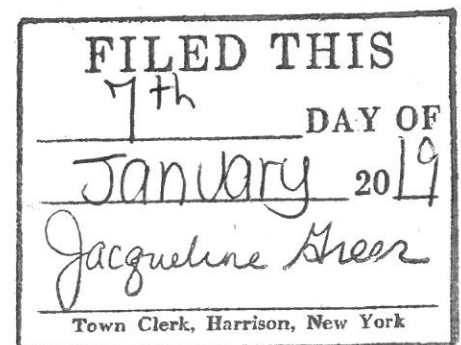 FILED THIS
7th
DAY OF
January 2019
Jacqueline Greer
Town Clerk, Harrison, New York